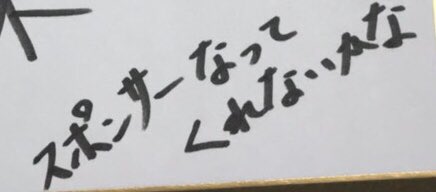 スポンサーなって
くれないかな